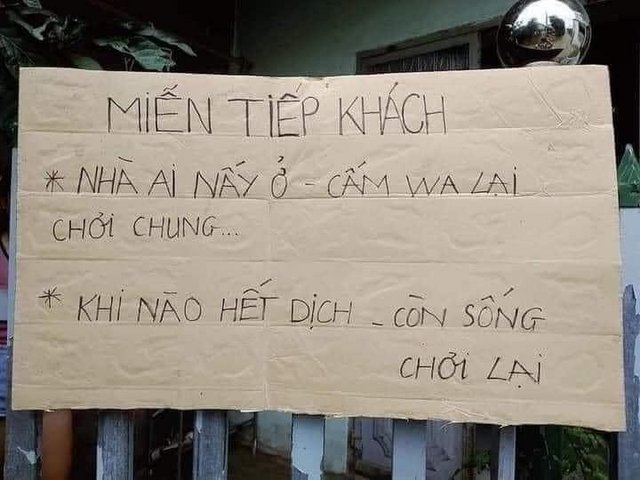 MIỄN TIẾP KHÁCH
* NHÀ AI NẤY Ở - CẤM WA LẠI
CHỞI CHUNG...
* KHI NÀO HẾT DỊCH - CÒN SỐNG
CHỞI LẠI